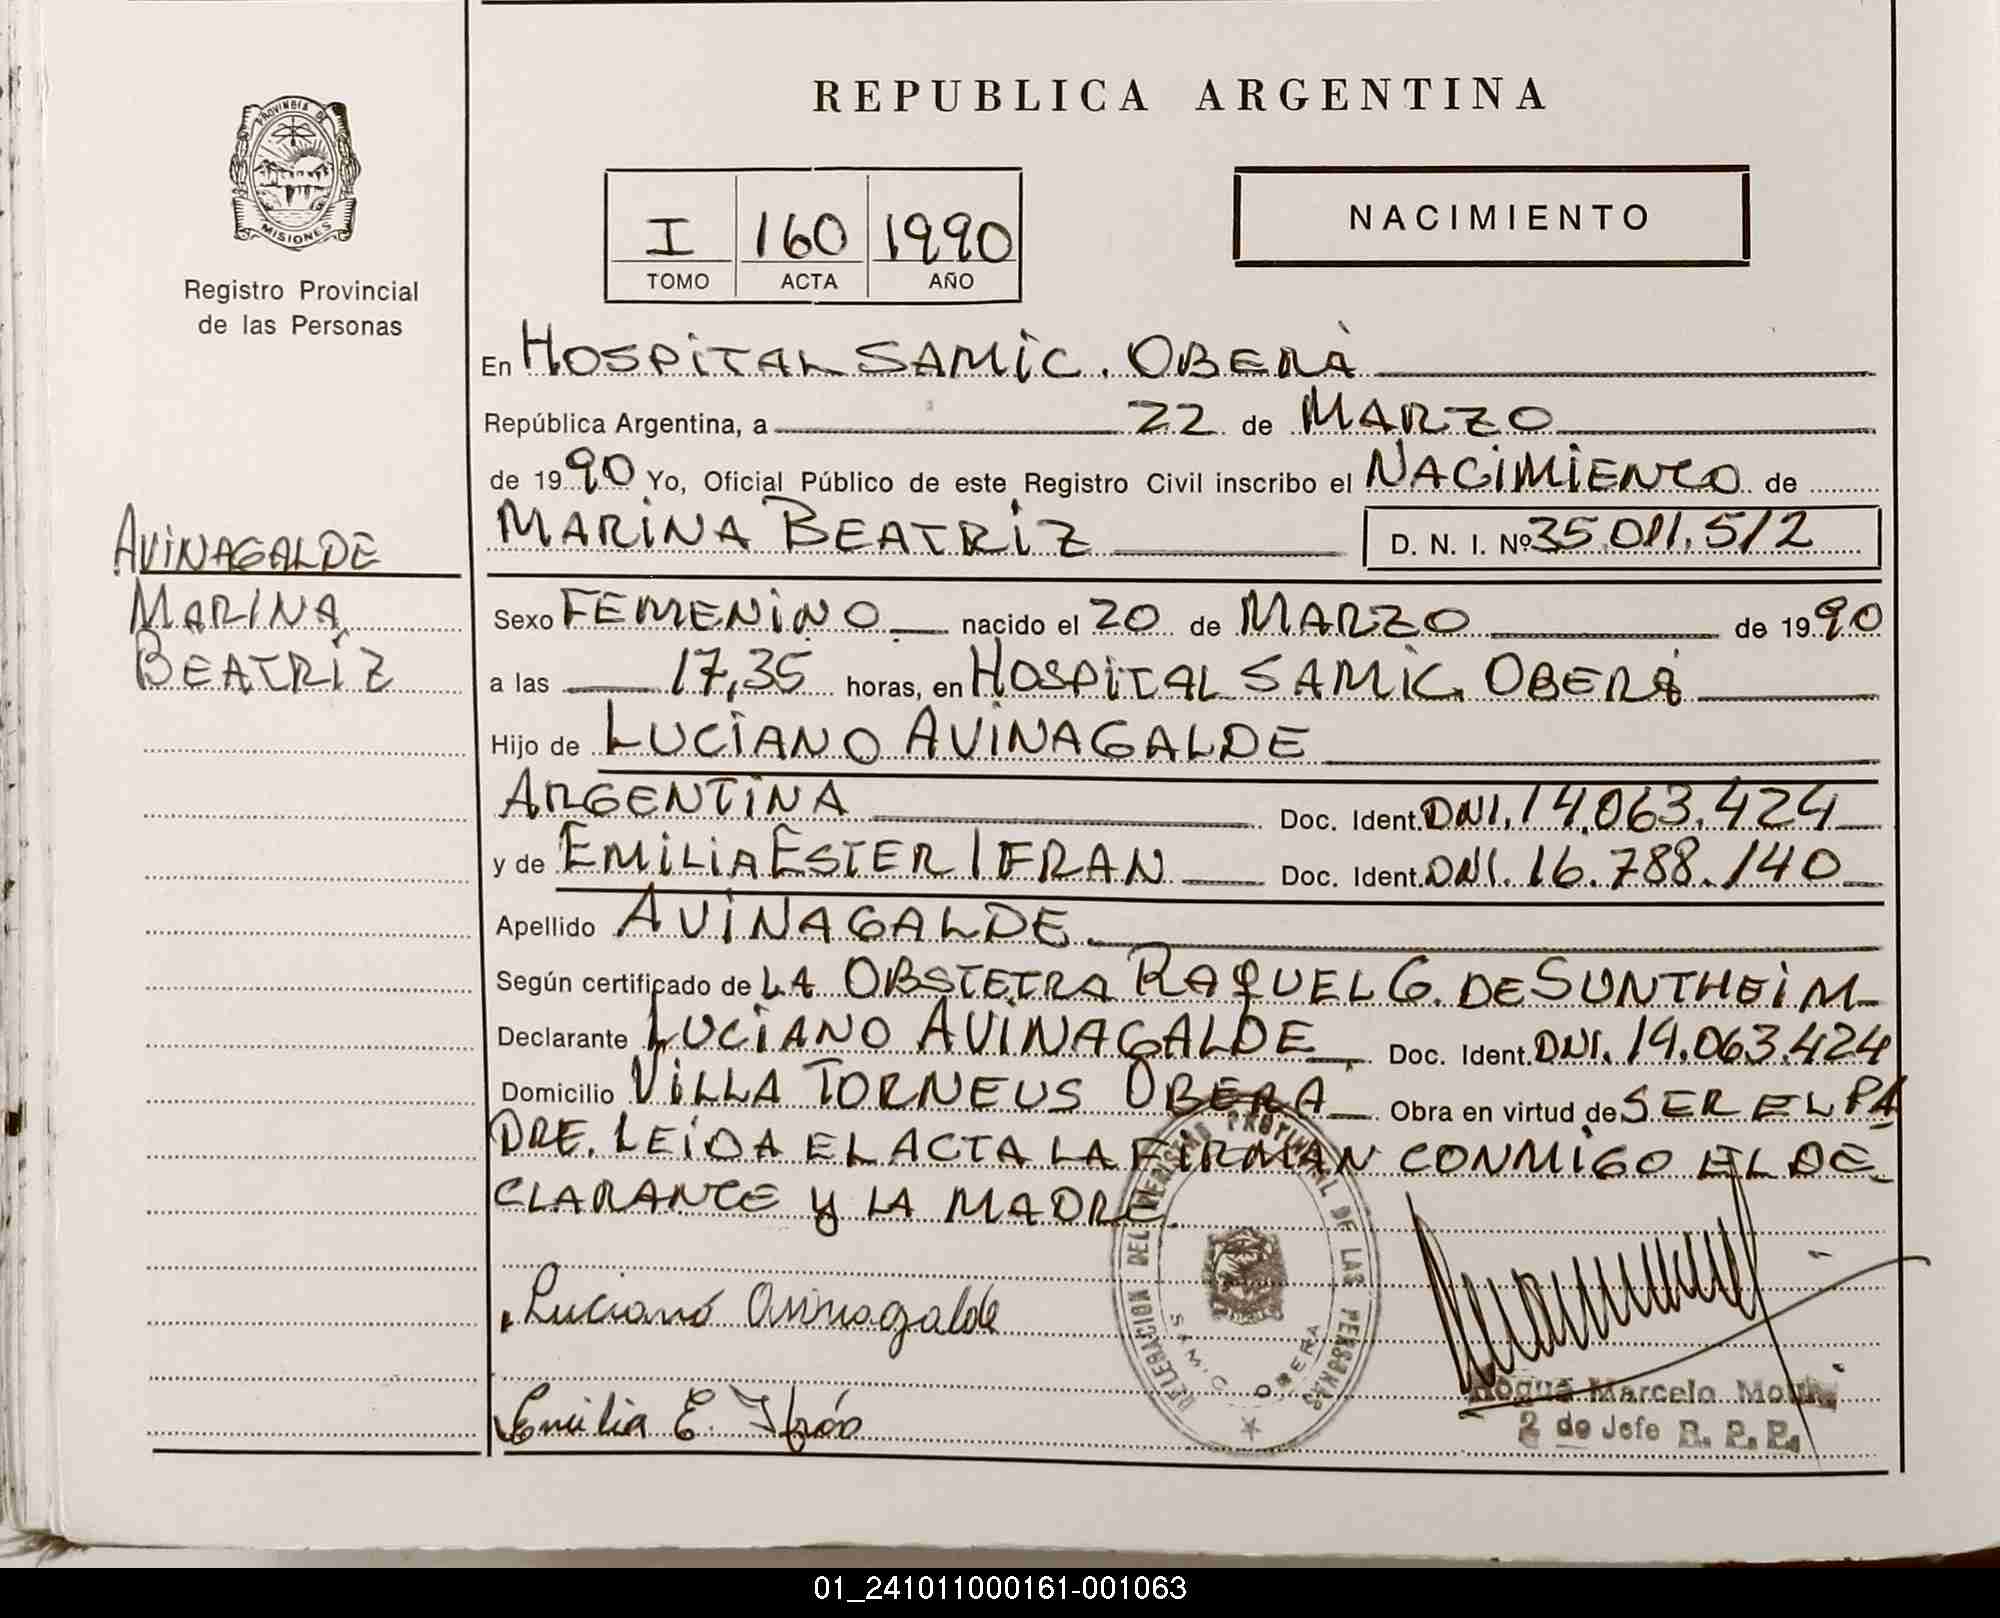 REPUBLICA ARGENTINA
PROVINCIA DE
MISIONES
Registro Provincial
de las Personas
I 160 1990
TOMO ACTA AÑO
NACIMIENTO
En HOSPITAL SAMIC. OBERÁ
República Argentina, a 22 de MARZO
de 1990 Yo, Oficial Público de este Registro Civil inscribo el NACIMIENTO de
MARINA BEATRIZ D. N. I. Nº 35.011.512
AVINAGALDE
MARINA
BEATRIZ
Sexo FEMENINO nacido el 20 de MARZO de 1990
a las 17,35 horas, en HOSPITAL SAMIC. OBERÁ
Hijo de LUCIANO AVINAGALDE
ARGENTINA Doc. Ident. DNI. 14.063.424
y de EMILIA ESTER IFRAN Doc. Ident. DNI. 16.788.140
Apellido AVINAGALDE
Según certificado de LA OBSTETRA RAQUEL G. DE SUNTHEIM
Declarante LUCIANO AVINAGALDE Doc. Ident. DNI. 14.063.424
Domicilio VILLA TORNEUS OBERÁ Obra en virtud de SER EL PA
DRE. LEIDA EL ACTA LA FIRMAN CONMIGO EL DE
CLARANTE Y LA MADRE.
DELEGACION DEL REGISTRO PROVINCIAL DE LAS PERSONAS
S.A.M.I.C. OBERA
Luciano Avinagalde
Emilia E. Ifrán
Roque Marcelo
2 do Jefe R. P. P.
01_241011000161-001063